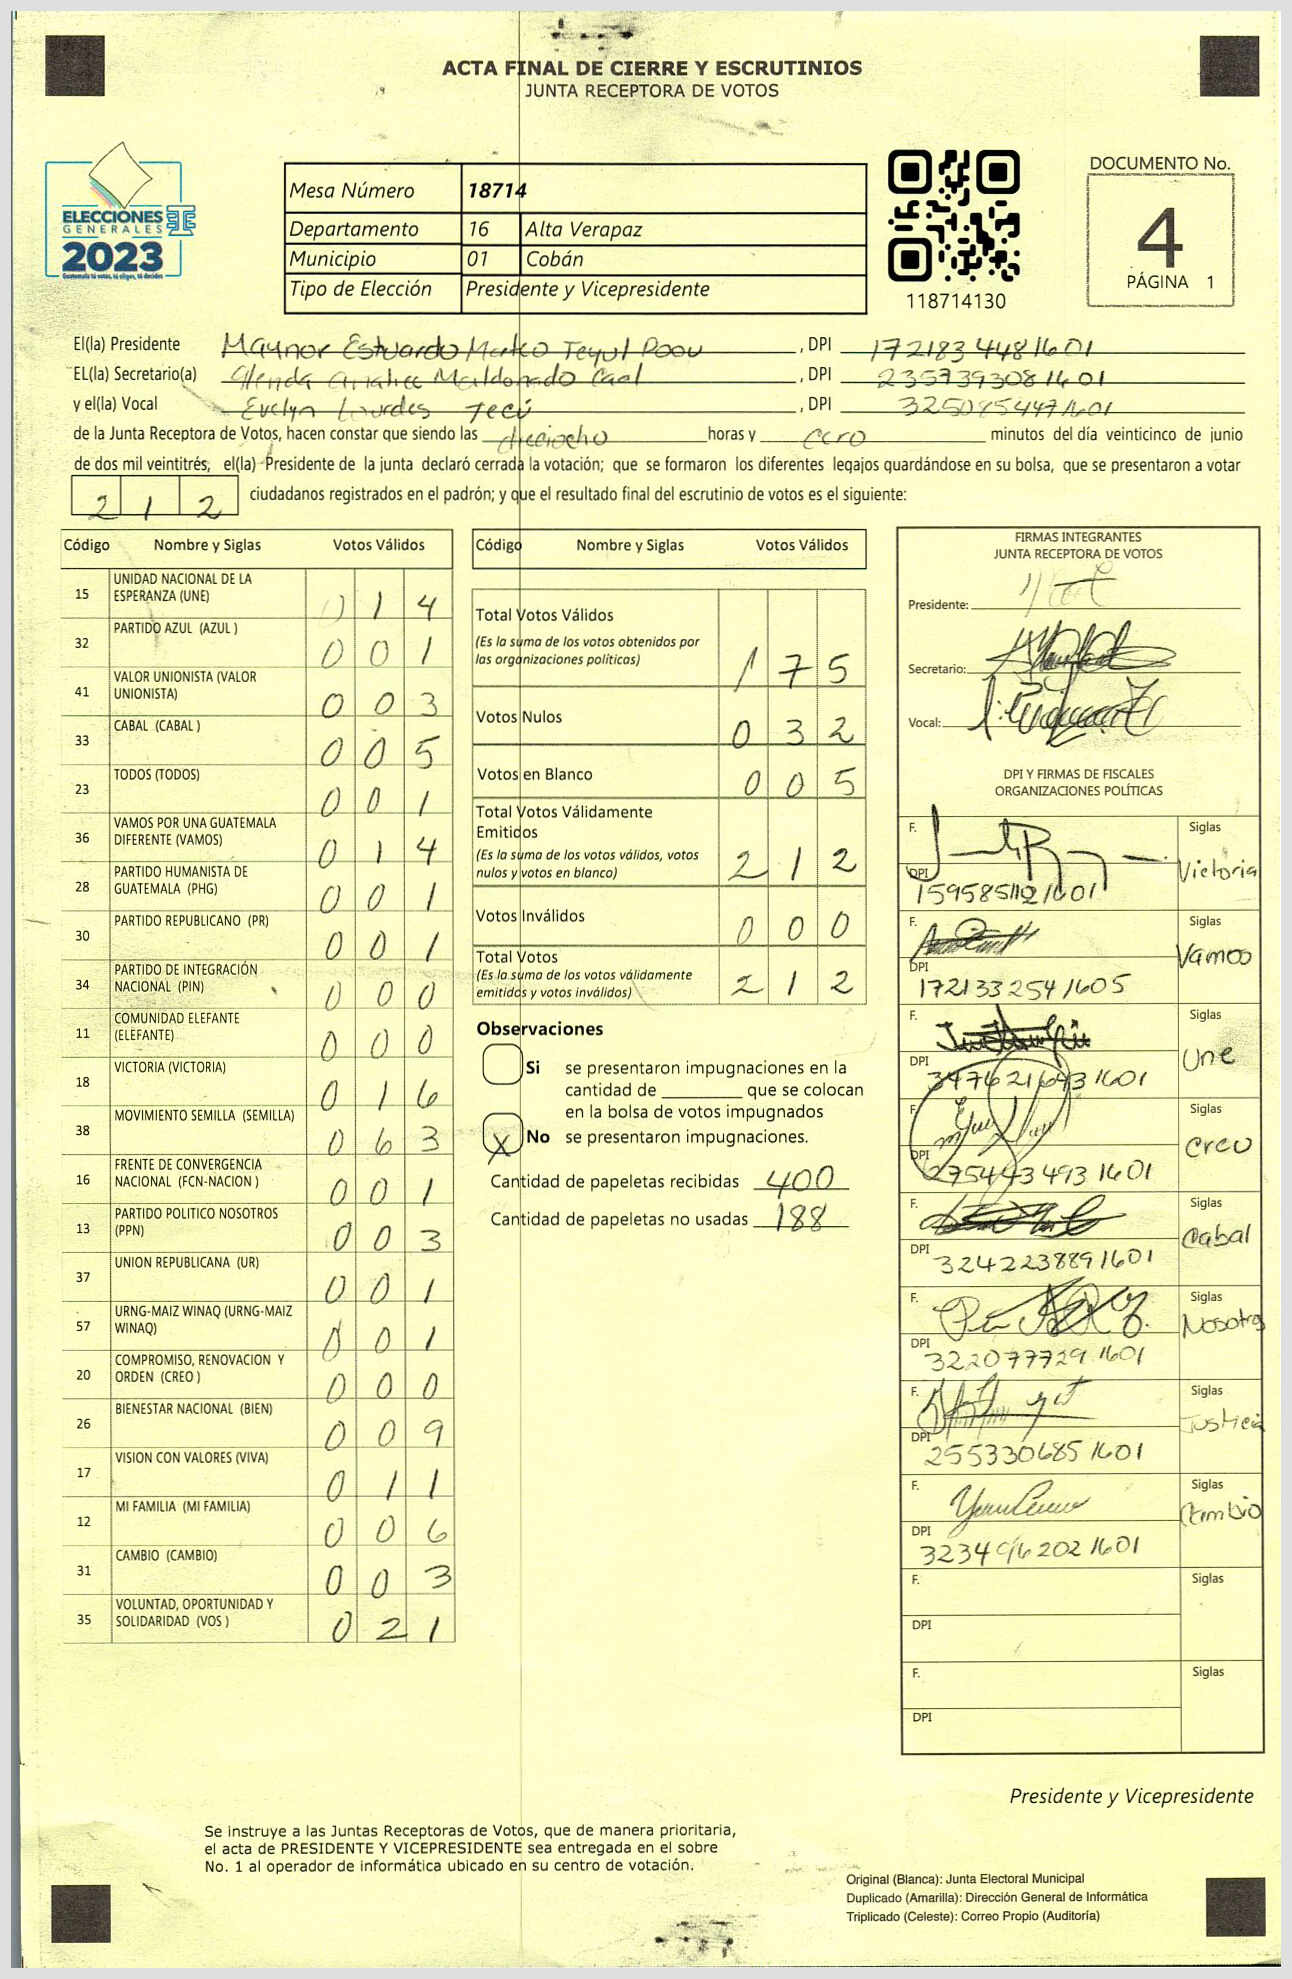 ACTA FINAL DE CIERRE Y ESCRUTINIOS
JUNTA RECEPTORA DE VOTOS
ELECCIONES
GENERALES
2023
Guatemala tú votas, tú eliges, tú decides
Mesa Número 18714
Departamento 16 Alta Verapaz
Municipio 01 Cobán
Tipo de Elección Presidente y Vicepresidente
118714130
DOCUMENTO No.
4
PÁGINA 1
El(la) Presidente Maynor Estuardo Mateo Teyul Poou, DPI 1721834481601
EL(la) Secretario(a) Glenda Maldonado Caal, DPI 2357393081601
y el(la) Vocal Evelyn Lourdes Tecú, DPI 3250854471601
de la Junta Receptora de Votos, hacen constar que siendo las dieciocho horas y cero minutos del día veinticinco de junio
de dos mil veintitrés, el(la) Presidente de la junta declaró cerrada la votación; que se formaron los diferentes legajos guardándose en su bolsa, que se presentaron a votar
212 ciudadanos registrados en el padrón; y que el resultado final del escrutinio de votos es el siguiente:
Código Nombre y Siglas Votos Válidos
15 UNIDAD NACIONAL DE LA ESPERANZA (UNE) 014
32 PARTIDO AZUL (AZUL ) 001
41 VALOR UNIONISTA (VALOR UNIONISTA) 003
33 CABAL (CABAL ) 005
23 TODOS (TODOS) 001
36 VAMOS POR UNA GUATEMALA DIFERENTE (VAMOS) 014
28 PARTIDO HUMANISTA DE GUATEMALA (PHG) 001
30 PARTIDO REPUBLICANO (PR) 001
34 PARTIDO DE INTEGRACIÓN NACIONAL (PIN) 000
11 COMUNIDAD ELEFANTE (ELEFANTE) 000
18 VICTORIA (VICTORIA) 016
38 MOVIMIENTO SEMILLA (SEMILLA) 063
16 FRENTE DE CONVERGENCIA NACIONAL (FCN-NACION ) 001
13 PARTIDO POLITICO NOSOTROS (PPN) 003
37 UNION REPUBLICANA (UR) 001
57 URNG-MAIZ WINAQ (URNG-MAIZ WINAQ) 001
20 COMPROMISO, RENOVACION Y ORDEN (CREO ) 000
26 BIENESTAR NACIONAL (BIEN) 009
17 VISION CON VALORES (VIVA) 011
12 MI FAMILIA (MI FAMILIA) 006
31 CAMBIO (CAMBIO) 003
35 VOLUNTAD, OPORTUNIDAD Y SOLIDARIDAD (VOS ) 021
Código Nombre y Siglas Votos Válidos
Total Votos Válidos 175
(Es la suma de los votos obtenidos por
las organizaciones políticas)
Votos Nulos 032
Votos en Blanco 005
Total Votos Válidamente
Emitidos 212
(Es la suma de los votos válidos, votos
nulos y votos en blanco)
Votos Inválidos 000
Total Votos 212
(Es la suma de los votos válidamente
emitidos y votos inválidos)
Observaciones
Si se presentaron impugnaciones en la
cantidad de ________ que se colocan
en la bolsa de votos impugnados
X No se presentaron impugnaciones.
Cantidad de papeletas recibidas 400
Cantidad de papeletas no usadas 188
FIRMAS INTEGRANTES
JUNTA RECEPTORA DE VOTOS
Presidente:
Secretario:
Vocal:
DPI Y FIRMAS DE FISCALES
ORGANIZACIONES POLÍTICAS
F. Siglas Victoria
DPI 1595851121601
F. Siglas Vamos
DPI 1721332541605
F. Siglas Une
DPI 3476216431601
F. Siglas Creo
DPI 2754434931601
F. Siglas Cabal
DPI 3242238891601
F. Siglas Nosotros
DPI 3220777291601
F. Siglas Justicia
DPI 2553306851601
F. Siglas Cambio
DPI 3234962021601
F. Siglas
DPI
F. Siglas
DPI
Presidente y Vicepresidente
Se instruye a las Juntas Receptoras de Votos, que de manera prioritaria,
el acta de PRESIDENTE Y VICEPRESIDENTE sea entregada en el sobre
No. 1 al operador de informática ubicado en su centro de votación.
Original (Blanca): Junta Electoral Municipal
Duplicado (Amarilla): Dirección General de Informática
Triplicado (Celeste): Correo Propio (Auditoría)